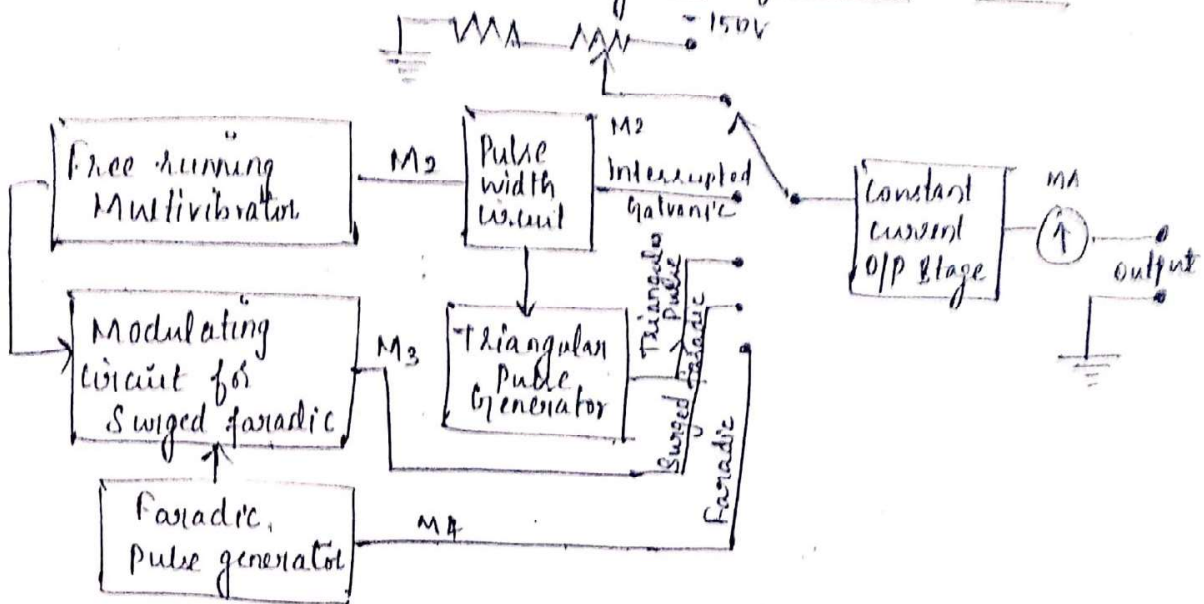 - 150V
Free running
Multivibrator
M2
Pulse
width
circuit
M2
Interrupted
Galvanic
Constant
current
O/P Stage
MA
output
Modulating
circuit for
Surged faradic
M3
Triangular
Pulse
Generator
Triangular
Pulse
Surged Faradic
Faradic
Faradic.
Pulse generator
M4